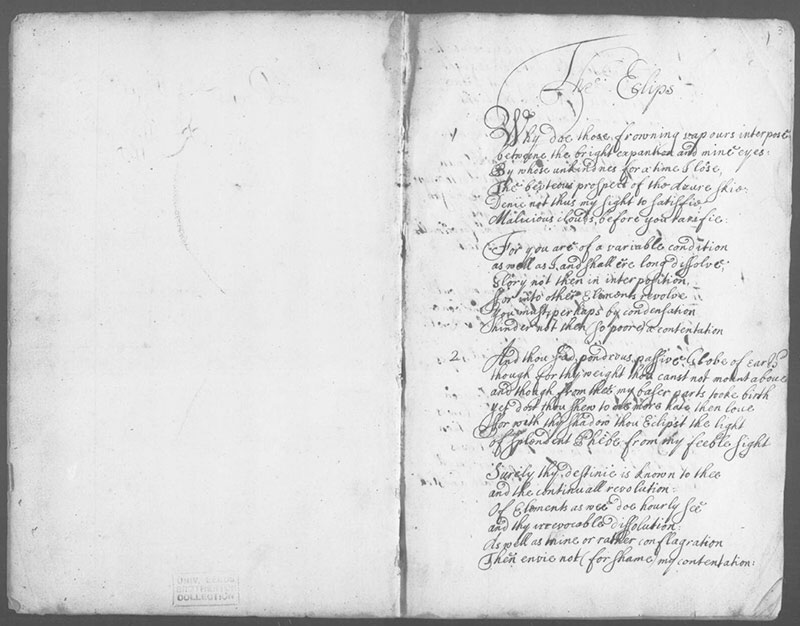 1 3
The Eclips
1 Why doe those frowning vapours interpose
betweene the bright expantion and mine eyes:
By whose unkindnes for a time I lose,
The beuteous prospect of the azure skie
Denie not thus my sight to satisfie
Malicious clouds, before you rarifie.
For you are of a variable condition
as well as I, and shall ere long dissolve,
Glory not then in interposition,
ffor into other Elements revolve
You must, perhaps by condensation
hinder not then so poore a contentation
2 And thou sad, pondrous, passive Globe of earth
though for thy weight thou canst not mount above
and though from thee my baser parts tooke birth
yet dost thou shew to me more hate then love
ffor with thy shadow thou Eclipst the light
of splendent Phebe from my feeble sight
Surely thy destinie is known to thee
and the continuall revolution:
Of Elements as wee doe hourly see
and thy irrevocable dissolution:
As well as mine or rather conflagration
Then envie not (for shame) my contentation:
UNIV. LEEDS
COLLECTION